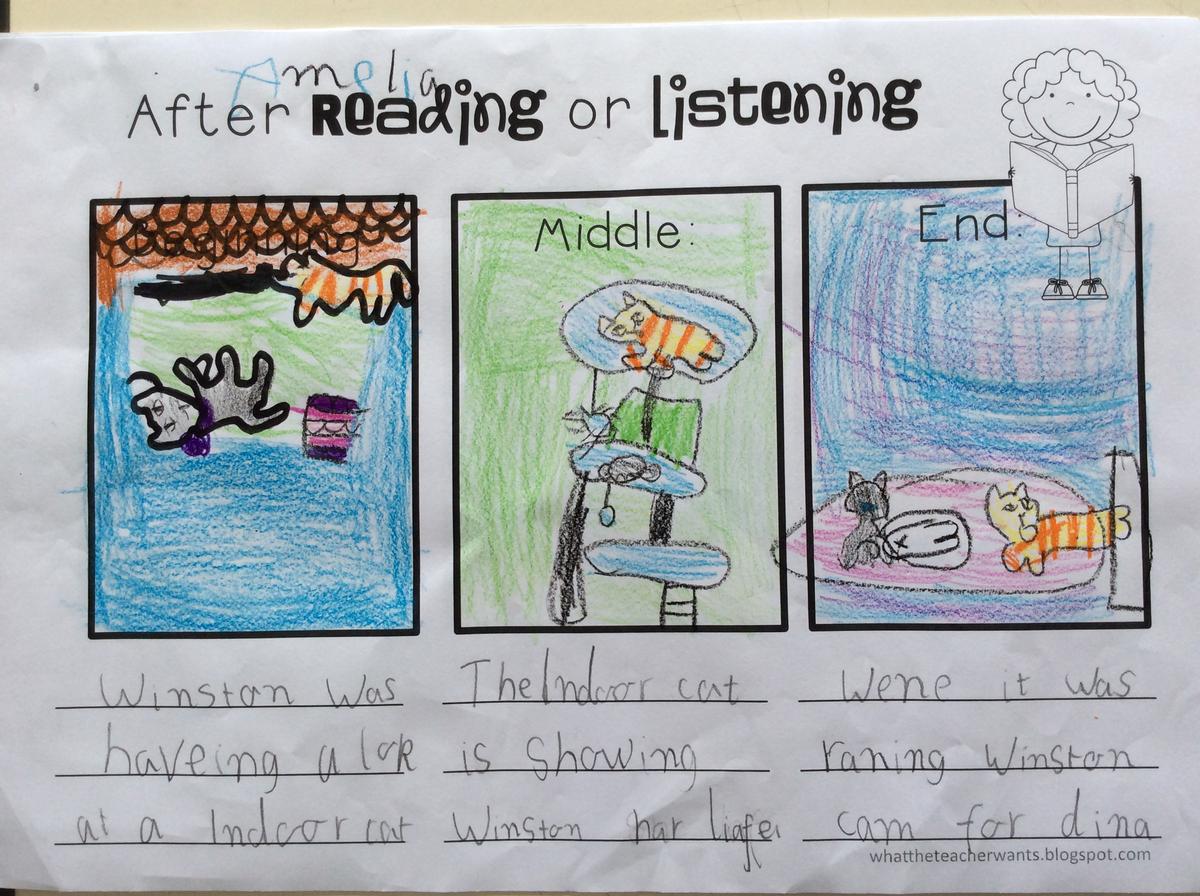 Amelia
After Reading or Listening
Beginning:
Middle:
End:
Winston was
haveing a lok
at a Indoor cat
The Indoor cat
is showing
Winston har
Wene it was
raning Winston
cam for dina
whattheteacherwants.blogspot.com